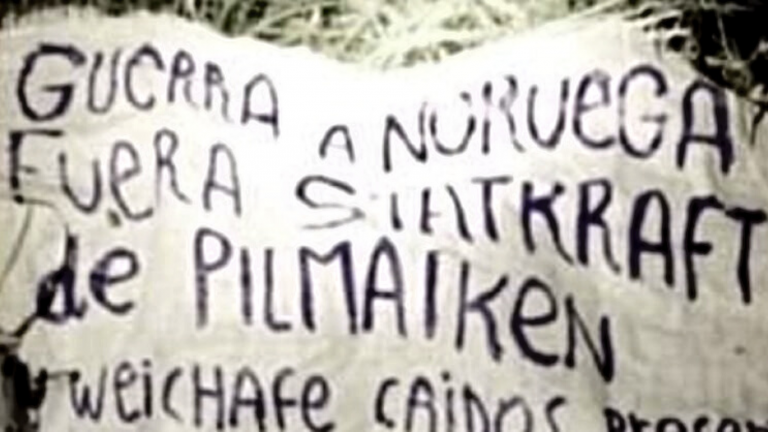 GUERRA A NORUEGA
FUERA STATKRAFT
de PILMAIKEN
WEICHAFE CAIDOS